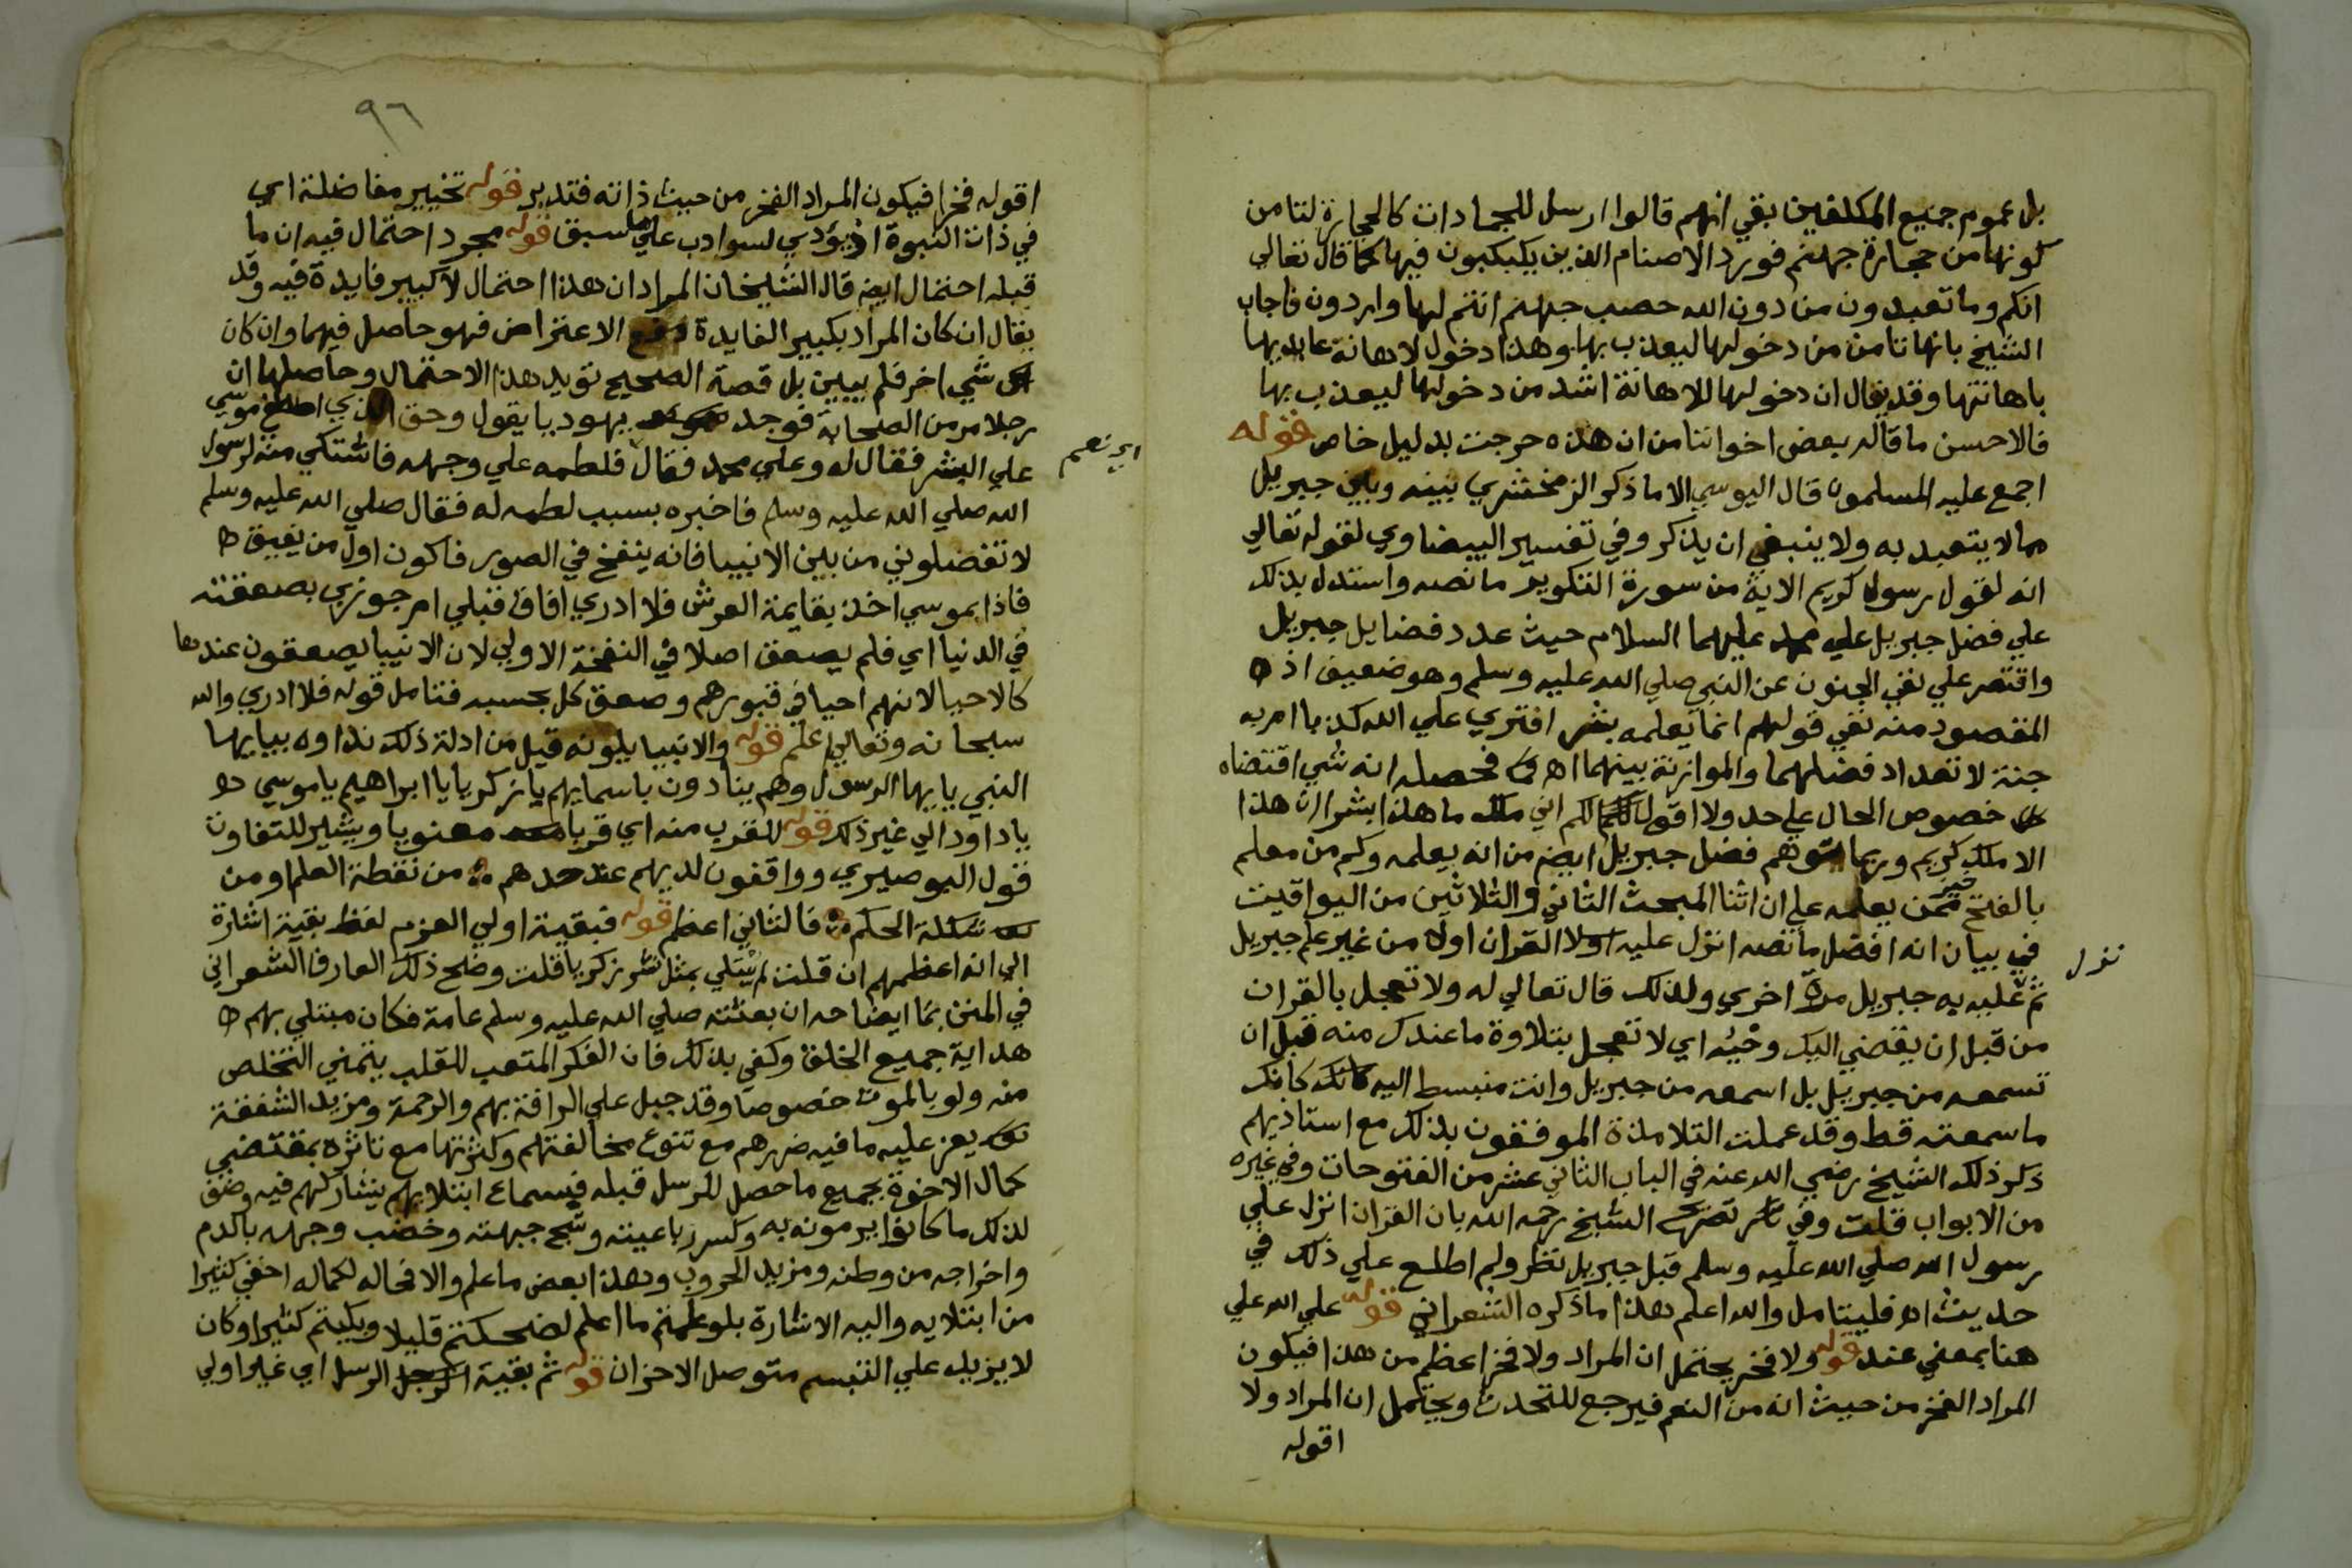 بل عموم جميع المكلفين بقي انهم قالوا ارسل للجمادات كالحجارة لتامن
كونها من حجارة جهنم فورد الاصنام الذين يكبكبون فيها كما قال تعالي
انكم وما تعبدون من دون الله حصب جهنم انتم لها واردون فاجاب
الشيخ بانها تامن من دخولها ليعذب بها وهذا دخول لاهانة عابديها
باهانتها وقد يقال ان دخولها للاهانة اشد من دخولها ليعذب بها
فالاحسن ما قاله بعض اخواننا من ان هذه خرجت بدليل خاص قوله
اجمع عليه المسلمون قال اليوسي الا ما ذكر الزمخشري بينه وبين جبريل
مما لا يتعبد به ولا ينبغي ان يذكر وفي تفسير البيضاوي لقوله تعالي
انه لقول رسول كريم الاية من سورة التكوير ما نصه واستدل بذلك
علي فضل جبريل علي محمد عليهما السلام حيث عدد فضايل جبريل
واقتصر علي نفي الجنون عن النبي صلي الله عليه وسلم وهو ضعيف اذ
المقصود منه نفي قولهم انما يعلمه بشر افتري علي الله كذبا ام به
جنة لا تعداد فضلهما والموازنة بينهما اه فحصله انه شي اقتضاه
خصوص الحال علي حد ولا اقول لكم اني ملك ما هذا بشرا ان هذا
الا ملك كريم وربما يتوهم فضل جبريل ايضا من انه يعلمه وكم من معلم
بالفتح خير ممن يعلمه علي ان اثنا المبحث الثاني والثلاثين من اليواقيت
في بيان انه افضل ما نصه انزل عليه القران اولا من غير علم جبريل
نزل
ثم به جبريل مرة اخري ولذلك قال تعالي له ولا تعجل بالقران
من قبل ان يقضي اليك وحيه اي لا تعجل بتلاوة ما عندك منه قبل ان
تسمعه من جبريل بل اسمعه من جبريل وانت منبسط اليه كانك
ما سمعته قط وقد عملت التلامذة الموفقون بذلك مع استاذيهم
ذكر ذلك الشيخ رضي الله عنه في الباب الثاني عشر من الفتوحات وفي غيره
من الابواب قلت وفي تصريح الشيخ رحمه الله بان القران انزل علي
رسول الله صلي الله عليه وسلم قبل جبريل نظر ولم اطلع علي ذلك في
حديث اه فليتامل والله اعلم هذا ما ذكره الشعراني قوله علي الله علي
هنا بمعني عند قوله ولا فخر يحتمل ان المراد ولا فخر اعظم من هذا فيكون
المراد الفخر من حيث انه من النعم فيرجع للتحدث ويحتمل ان المراد ولا
اقوله
٩٦
اقوله فخرا فيكون المراد الفخر من حيث ذاته فتدبر قوله تخيير مفاضلة اي
في ذات النبوة اذ يؤدي لسو ادب علي ما سبق قوله مجرد احتمال فيه ان ما
قبله احتمال ايضا قال الشيخان المراد ان هذا احتمال لا كبير فايدة فيه وقد
يقال ان كان المراد بكبير الفايدة دفع الاعتراض فهو حاصل فيهما وان كان
شي اخر فلم يبين بل قصة الصحيح تويد هذا الاحتمال وحاصلها ان
رجلا مر من الصحابة فوجد يهوديا يقول وحق الذي اصطفي موسي
علي البشر فقال له وعلي محمد فقال فلطمه علي وجهه فاشتكي منه لرسول
اي نعم
الله صلي الله عليه وسلم فاخبره بسبب لطمه له فقال صلي الله عليه وسلم
لا تفضلوني من بين الانبيا فانه ينفخ في الصور فاكون اول من يفيق
فاذا بموسي اخذ بقايمة العرش فلا ادري افاق قبلي ام جوزي بصعقته
في الدنيا اي فلم يصعق اصلا في النفخة الاولي لان الانبيا يصعقون عندها
كالاحيا لانهم احيا في قبورهم وصعق كل بحسبه فتامل قوله فلا ادري والله
سبحانه وتعالي اعلم قوله والانبيا يلونه قيل من ادلة ذلك نداوه بيا يها
النبي يا يها الرسول وهم ينادون باسمايهم يا زكريا يا ابراهيم يا موسي
يا داود الي غير ذلك قوله للقرب منه اي قربا معنويا ويشير للتفاوت
قول البوصيري وواقفون لديهم عند حدهم من نقطة العلم او من
شكلة الحكم فالثاني اعظم قوله فبقية اولي العزم لفظ بقية اشارة
الي انه اعظمهم ان قلت لم يبتلي بمثل نشر زكريا قلت وضح ذلك العارف الشعراني
في المنن بما ايضاحه ان بعثته صلي الله عليه وسلم عامة فكان مبتلي بهم
هداية جميع الخلق وكفي بذلك فان الفكر المتعب للقلب يتمني التخلص
منه ولو بالموت خصوصا وقد جبل علي الرافة بهم والرحمة ومزيد الشفقة
يعز عليه ما فيه ضررهم مع تنوع مخالفتهم وكثرتها مع تاثره بمقتضي
كمال الاخوة بجميع ما حصل للرسل قبله فبسماع ابتلايهم يشاركهم فيه وضق
لذلك ما كانوا يرمونه به وكسر رباعيته وشج جبهته وخضب وجهه بالدم
واخراجه من وطنه ومزيد الحروب وهذا بعض ما علم والا فحاله لكماله اخفي كثيرا
من ابتلايه واليه الاشارة بلو علمتم ما اعلم لضحكتم قليلا وبكيتم كثيرا وكان
لا يزيد علي التبسم متوصل الاحزان قوله ثم بقية الرسل اي غير اولي